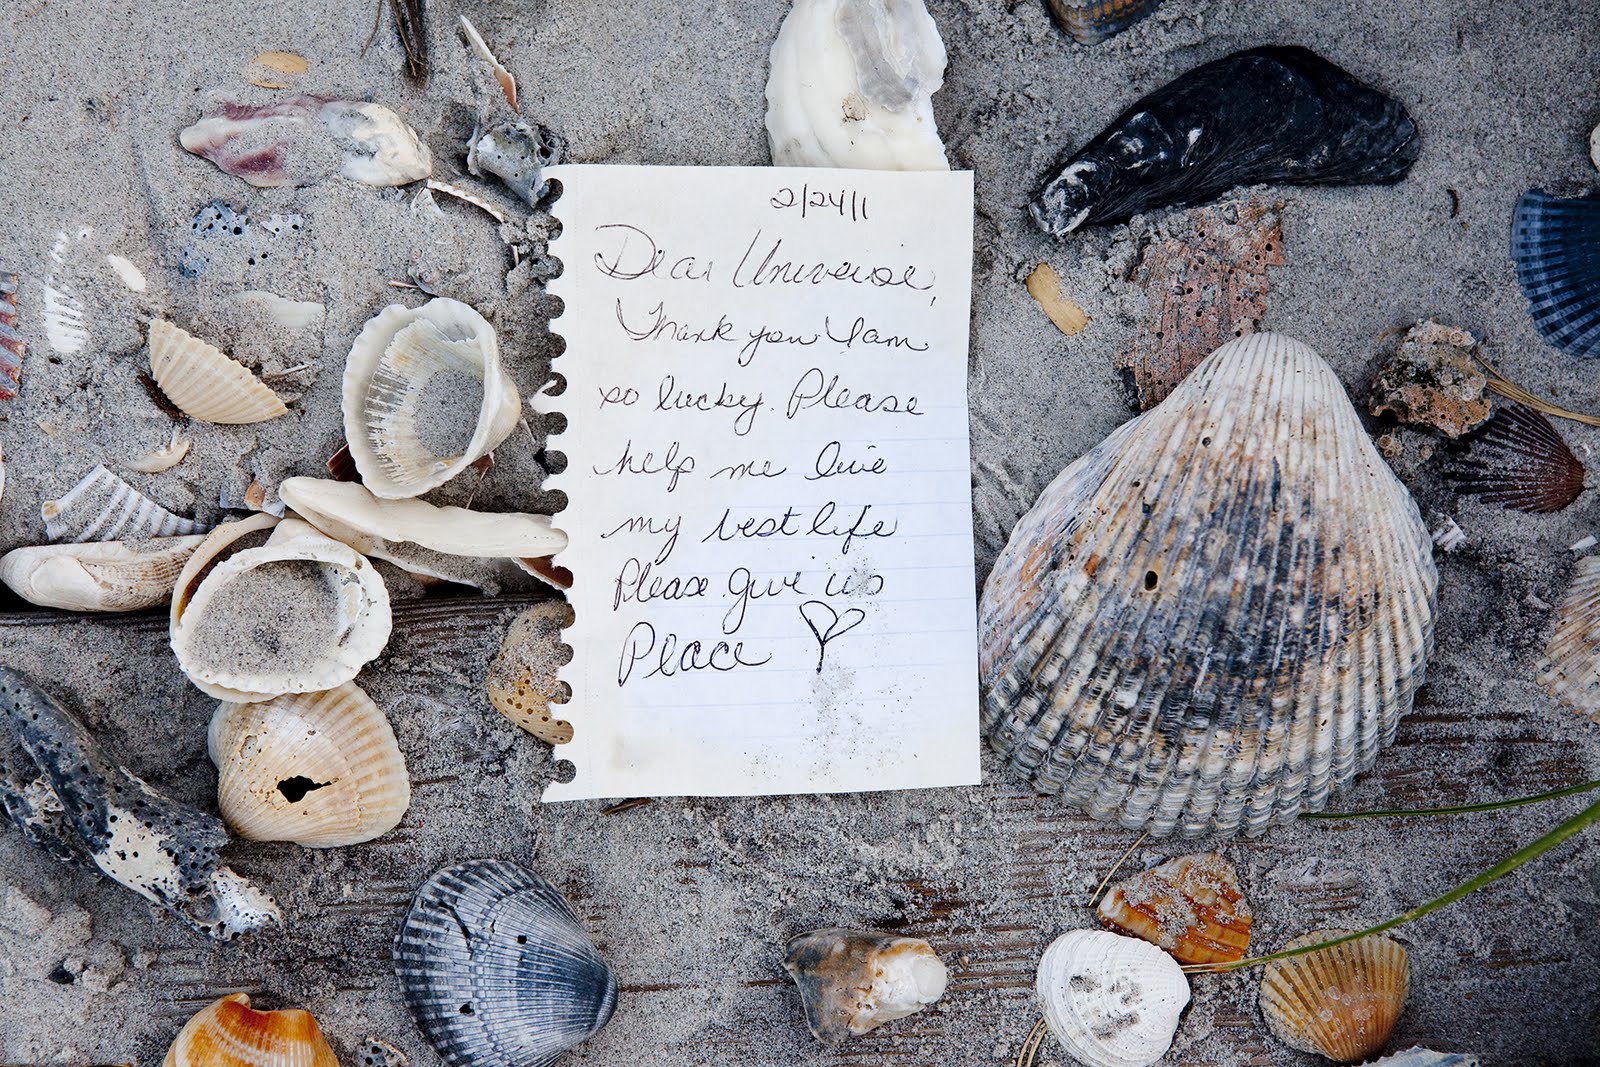 2/24/11
Dear Universe,
Thank you I am
so lucky. Please
help me live
my best life
Please give us
Peace